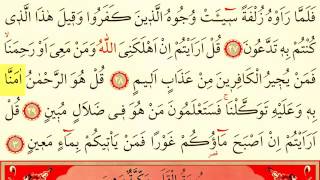 فَلَمَّا رَاَوْهُ زُلْفَةً سٖٓيـَٔتْ وُجُوهُ الَّذٖينَ كَفَرُوا وَقٖيلَ هٰذَا الَّذٖى
كُنْتُمْ بِهٖ تَدَّعُونَ ﴿٢٧﴾ قُلْ اَرَاَيْتُمْ اِنْ اَهْلَكَنِىَ اللّٰهُ وَمَنْ مَعِىَ اَوْ رَحِمَنَا
فَمَنْ يُجٖيرُ الْكَافِرٖينَ مِنْ عَذَابٍ اَلٖيمٍ ﴿٢٨﴾ قُلْ هُوَ الرَّحْمٰنُ اٰمَنَّا
بِهٖ وَعَلَيْهِ تَوَكَّلْنَا فَسَتَعْلَمُونَ مَنْ هُوَ فٖى ضَلَالٍ مُبٖينٍ ﴿٢٩﴾ قُلْ
اَرَاَيْتُمْ اِنْ اَصْبَحَ مَٓاؤُكُمْ غَوْرًا فَمَنْ يَاْتٖيكُمْ بِمَٓاءٍ مَعٖينٍ ﴿٣٠﴾